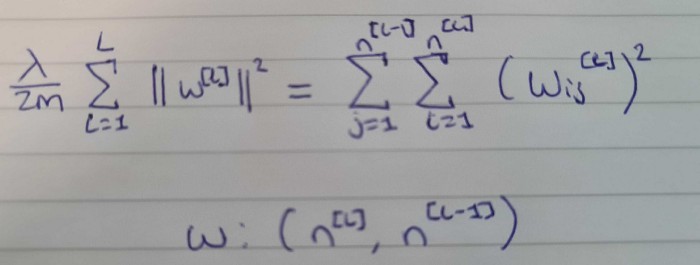 λ/2m ∑_{l=1}^{L} ||w^{[l]}||² = ∑_{j=1}^{n^{[l-1]}} ∑_{i=1}^{n^{[l]}} (w_{ij}^{[l]})²
w: (n^{[l]}, n^{[l-1]})